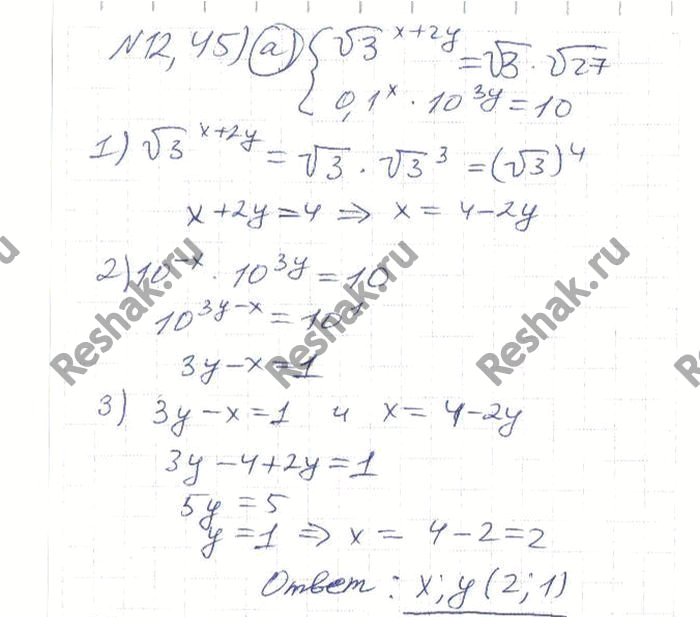 N12,45) а) { √3^(x+2y) = √3 · √27
0,1^x · 10^(3y) = 10
1) √3^(x+2y) = √3 · √3^3 = (√3)^4
x+2y=4 ⇒ x = 4-2y
2) 10^(-x) · 10^(3y) = 10
10^(3y-x) = 10^1
3y-x=1
3) 3y-x=1 и x= 4-2y
3y-4+2y=1
5y=5
y=1 ⇒ x = 4-2=2
Ответ: x; y (2; 1)
Reshak.ru
Reshak.ru
Reshak.ru